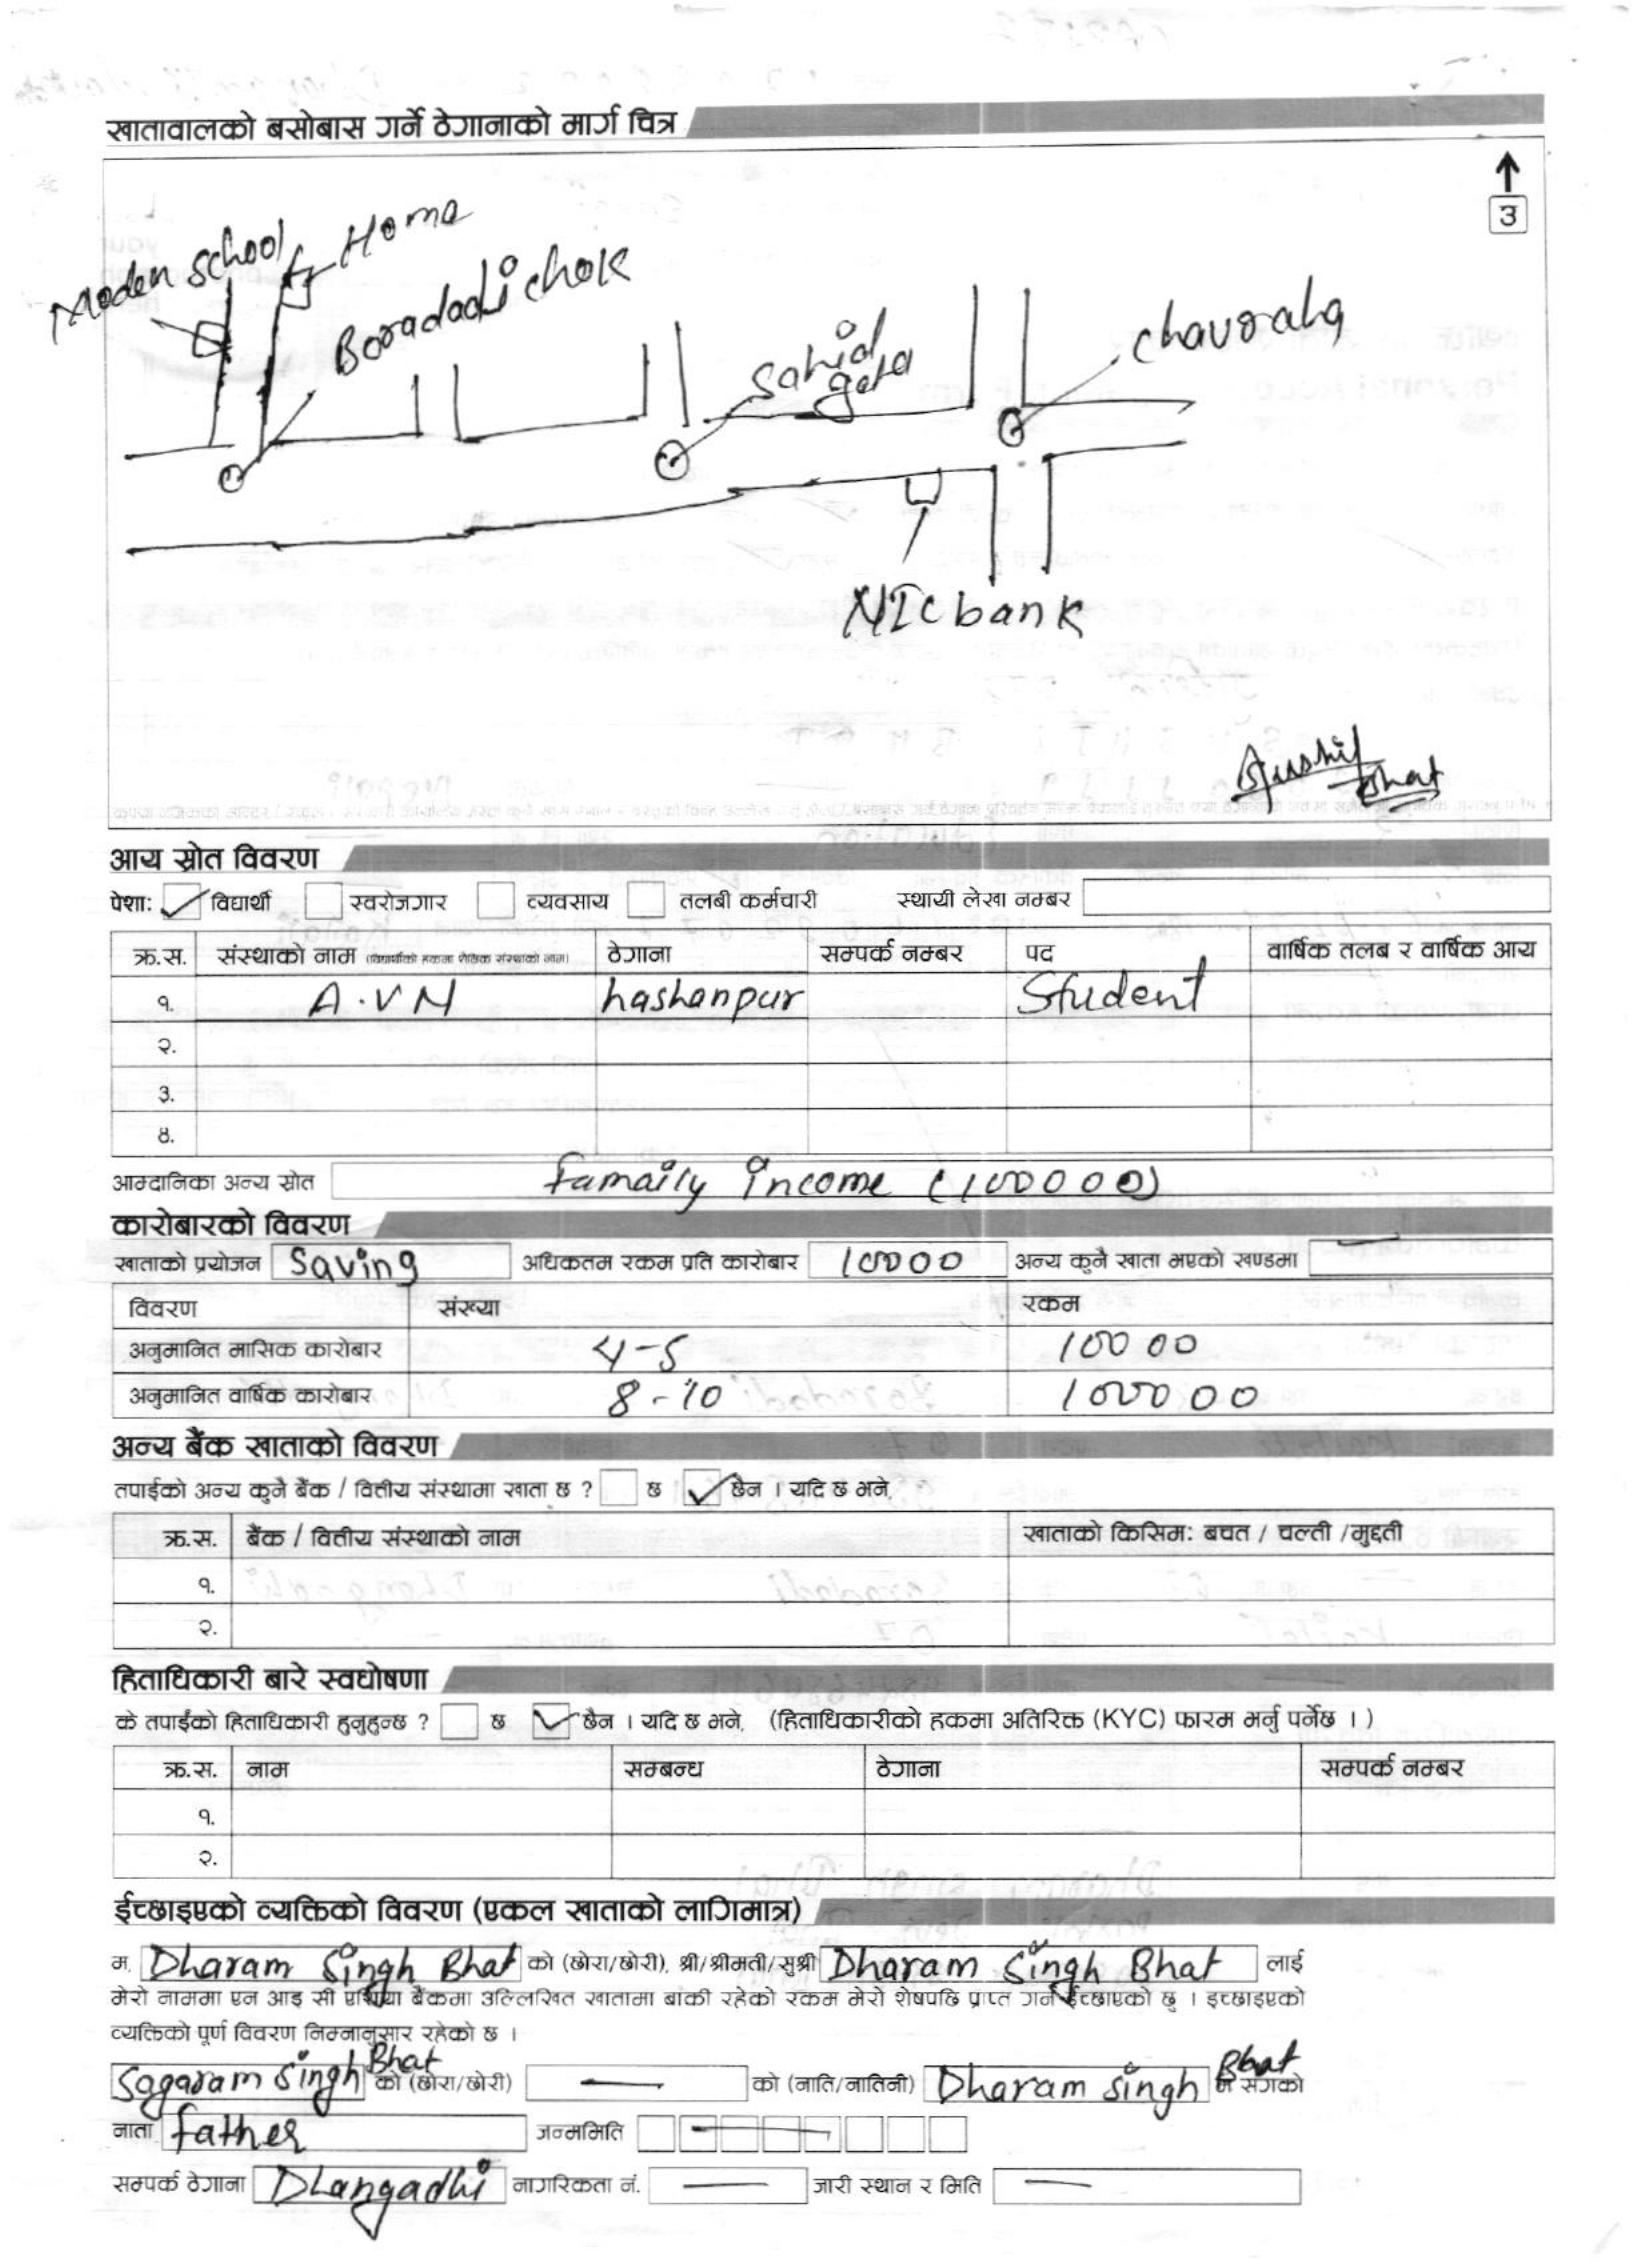 खातावालको बसोबास गर्ने ठेगानाको मार्ग चित्र
उ
Moden school
Home
Boradadi chok
Sahid gate
chauraha
NIC bank
Sushil Bhat
आय स्रोत विवरण
पेशा: विद्यार्थी स्वरोजगार व्यवसाय तलबी कर्मचारी स्थायी लेखा नम्बर
क्र.स. संस्थाको नाम (विद्यार्थीको हकमा शैक्षिक संस्थाको नाम) ठेगाना सम्पर्क नम्बर पद वार्षिक तलब र वार्षिक आय
१. A.VN hashanpur Student
२.
३.
४.
आम्दानिका अन्य स्रोत Famaily income (100000)
कारोबारको विवरण
खाताको प्रयोजन Saving अधिकतम रकम प्रति कारोबार 10000 अन्य कुनै खाता भएको खण्डमा —
विवरण संख्या रकम
अनुमानित मासिक कारोबार 4-5 10000
अनुमानित वार्षिक कारोबार 8-10 100000
अन्य बैंक खाताको विवरण
तपाईको अन्य कुनै बैंक / वित्तीय संस्थामा खाता छ ? छ छैन । यदि छ भने,
क्र.स. बैंक / वित्तीय संस्थाको नाम खाताको किसिम: बचत / चल्ती /मुद्दती
१.
२.
हिताधिकारी बारे स्वघोषणा
के तपाईंको हिताधिकारी हुनुहुन्छ ? छ छैन । यदि छ भने, (हिताधिकारीको हकमा अतिरिक्त (KYC) फारम भर्नु पर्नेछ ।)
क्र.स. नाम सम्बन्ध ठेगाना सम्पर्क नम्बर
१.
२.
ईच्छाइएको व्यक्तिको विवरण (एकल खाताको लागिमात्र)
म, Dharam Singh Bhat को (छोरा/छोरी), श्री/श्रीमती/सुश्री Dharam Singh Bhat लाई
मेरो नाममा एन आइ सी एशिया बैंकमा उल्लिखित खातामा बांकी रहेको रकम मेरो शेषपछि प्राप्त गर्न ईच्छाएको छु । इच्छाइएको
व्यक्तिको पूर्ण विवरण निम्नानुसार रहेको छ ।
Sagaram Singh Bhat को (छोरा/छोरी) — को (नाति/नातिनी) Dharam singh Bhat म संगको
नाता father जन्ममिति —
सम्पर्क ठेगाना Dhangadhi नागरिकता नं. — जारी स्थान र मिति —